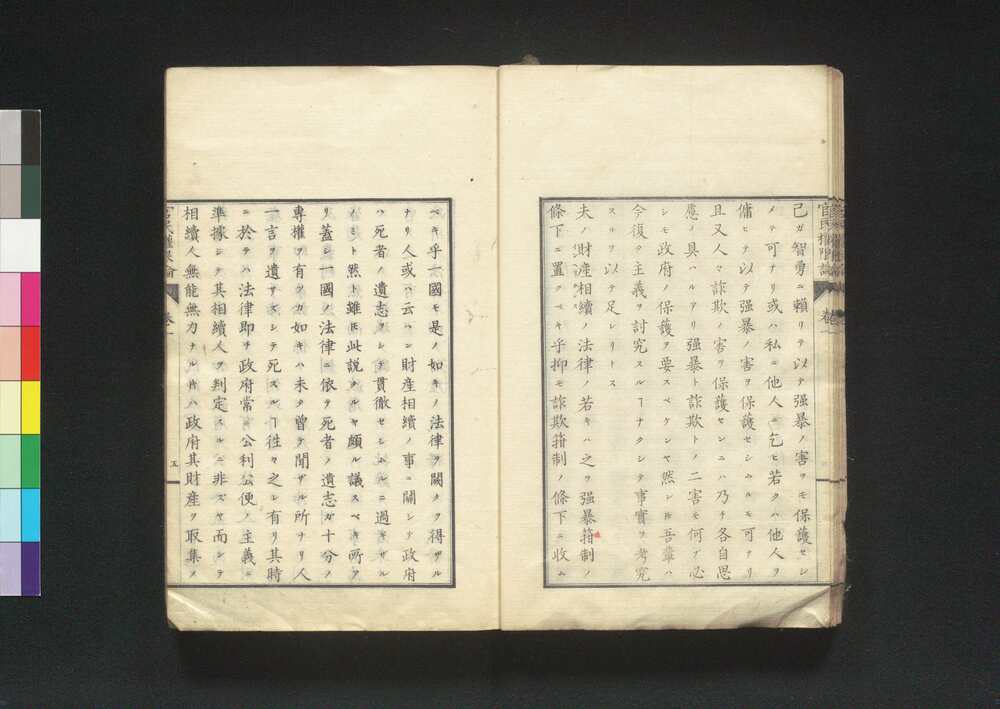 己ガ智勇ニ賴リテ以テ强暴ノ害ヲモ保護セシ
メテ可ナリ或ハ私ニ他人ニ乞ヒ若クハ他人ヲ
傭ヒテ以テ强暴ノ害ヲ保護セシムルモ可ナリ
且又人々詐欺ノ害ヲ保護センニハ乃チ各自思
慮ノ具ハルアリ强暴ト詐欺トノ二害モ何ゾ必
シモ政府ノ保護ヲ要スベケンヤ然レ𪜈吾輩ハ
今復タ主義ヲ討究スルヿナクシテ事實ヲ考究
スルヲ以テ足レリトス
夫ノ財產相續ノ法律ノ若キハ之ヲ强暴箝制ノ
條下ニ置クベキ乎抑モ詐欺箝制ノ條下ニ收ム
官民權限論
卷一
ベキ乎一國モ是ノ如キノ法律ヲ闕クヲ得ザル
ナリ人或ハ云ハン財產相續ノ事ニ關シテ政府
ハ死者ノ遺志ヲシテ貫徹セシムルニ過ギザル
ノミト然ト雖𪜈此說タルヤ頗ル議スベキ所ア
リ蓋シ一國ノ法律ニ依テ死者ノ遺志ガ十分ノ
專權ヲ有クガ如キハ未タ曾テ聞ザル所ナリ人
一言ヲ遺サズシテ死スルヿ徃々之レ有リ其時
ニ於テハ法律即チ政府常ニ公利公便ノ主義ニ
準據シテ其相續人ヲ判定スルニ非ズヤ而シテ
相續人無能無力ナル𪜈ハ政府其財產ヲ取集メ
官民權限論
卷一
五